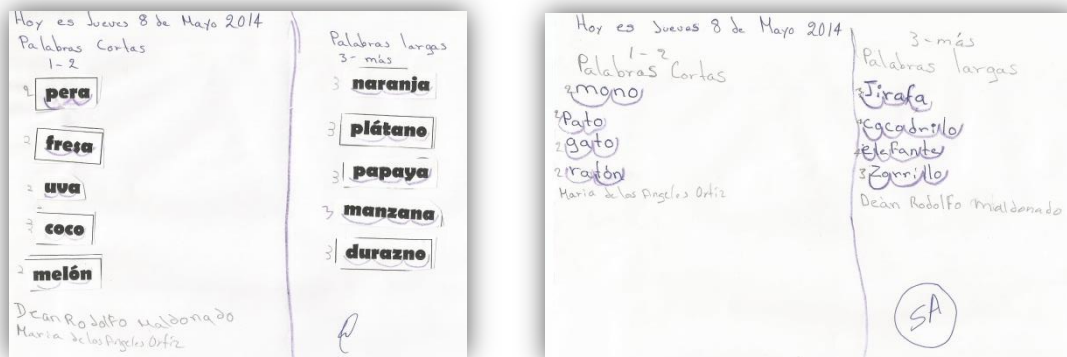 Hoy es Jueves 8 de Mayo 2014
Palabras Cortas
1-2
2 pera
2 fresa
2 uva
2 coco
2 melón
Dean Rodolfo Maldonado
Maria de los Angeles Ortiz
Palabras largas
3-más
3 naranja
3 plátano
3 papaya
3 manzana
3 durazno
Hoy es Jueves 8 de Mayo 2014
1-2
Palabras Cortas
2 mono
2 Pato
2 gato
2 ratón
Maria de los Angeles Ortiz
3-más
Palabras largas
3 Jirafa
Cocodrilo
elefante
3 Zorrillo
Deán Rodolfo Maldonado
SA